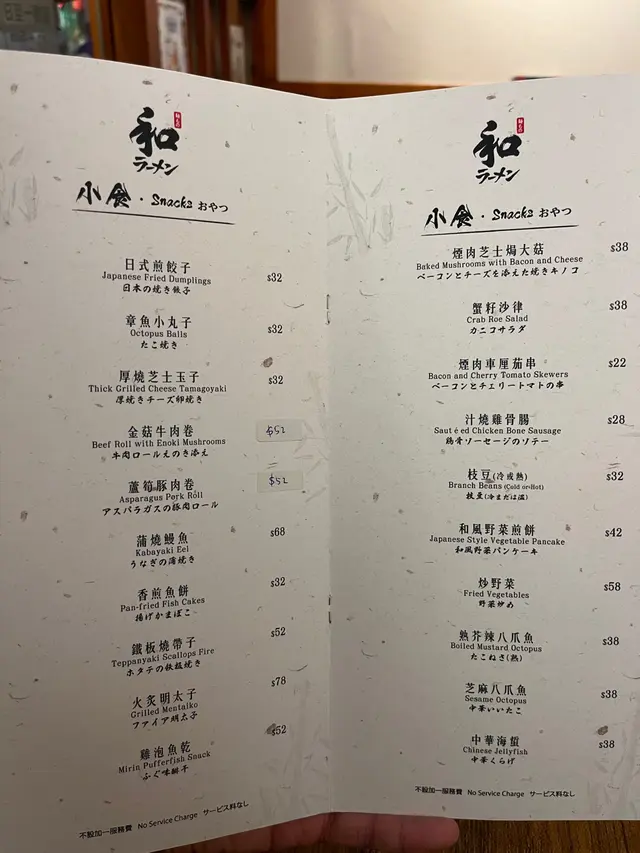 和
ラーメン
小食・Snacks おやつ
日式煎餃子
Japanese Fried Dumplings
日本の焼き餃子
$32
章魚小丸子
Octopus Balls
たこ焼き
$32
厚燒芝士玉子
Thick Grilled Cheese Tamagoyaki
厚焼きチーズ卵焼き
$32
金菇牛肉卷
Beef Roll with Enoki Mushrooms
牛肉ロールえのき添え
$52
蘆筍豚肉卷
Asparagus Pork Roll
アスパラガスの豚肉ロール
$52
蒲燒鰻魚
Kabayaki Eel
うなぎの蒲焼き
$68
香煎魚餅
Pan-fried Fish Cakes
揚げかまぼこ
$32
鐵板燒帶子
Teppanyaki Scallops Fire
ホタテの鉄板焼き
$52
火炙明太子
Grilled Mentaiko
ファイア明太子
$78
雞泡魚乾
Mirin Pufferfish Snack
ふぐ味醂干
$52
不設加一服務費 No Service Charge サービス料なし
和
ラーメン
小食・Snacks おやつ
煙肉芝士焗大菇
Baked Mushrooms with Bacon and Cheese
ベーコンとチーズを添えた焼きキノコ
$38
蟹籽沙律
Crab Roe Salad
カニコサラダ
$38
煙肉車厘茄串
Bacon and Cherry Tomato Skewers
ベーコンとチェリートマトの串
$22
汁燒雞骨腸
Sautéed Chicken Bone Sausage
鶏骨ソーセージのソテー
$28
枝豆(冷或熱)
Branch Beans (Cold or Hot)
枝豆(冷または温)
$32
和風野菜煎餅
Japanese Style Vegetable Pancake
和風野菜パンケーキ
$42
炒野菜
Fried Vegetables
野菜炒め
$58
熟芥辣八爪魚
Boiled Mustard Octopus
たこねさ(熟)
$38
芝麻八爪魚
Sesame Octopus
中華いいたこ
$38
中華海蜇
Chinese Jellyfish
中華くらげ
$38
不設加一服務費 No Service Charge サービス料なし